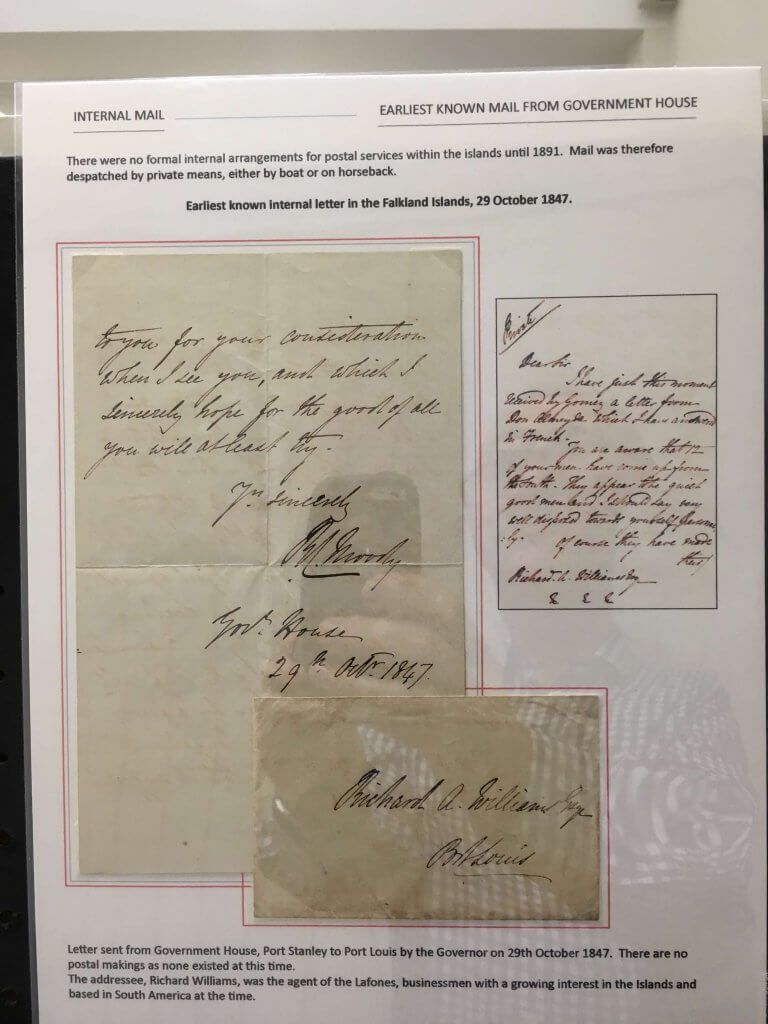 INTERNAL MAIL
EARLIEST KNOWN MAIL FROM GOVERNMENT HOUSE
There were no formal internal arrangements for postal services within the islands until 1891. Mail was therefore
despatched by private means, either by boat or on horseback.
Earliest known internal letter in the Falkland Islands, 29 October 1847.
to you for your consideration
when I see you, and which I
sincerely hope for the good of all
you will at least try.
Yrs sincerely
Moody
Govt. House
29th Octr. 1847.
Private
Dear Sir
I have just this moment
received by Gomez a letter from
Don which I have answered
in French.
You are aware that 12
of your men have come up from
the South. They appear the quiet
good men and I should say very
well disposed towards yourself
of course they have made
their/
Richard A. Williams Esq
& & &
Richard A. Williams Esqr
Port Louis
Letter sent from Government House, Port Stanley to Port Louis by the Governor on 29th October 1847. There are no
postal makings as none existed at this time.
The addressee, Richard Williams, was the agent of the Lafones, businessmen with a growing interest in the Islands and
based in South America at the time.